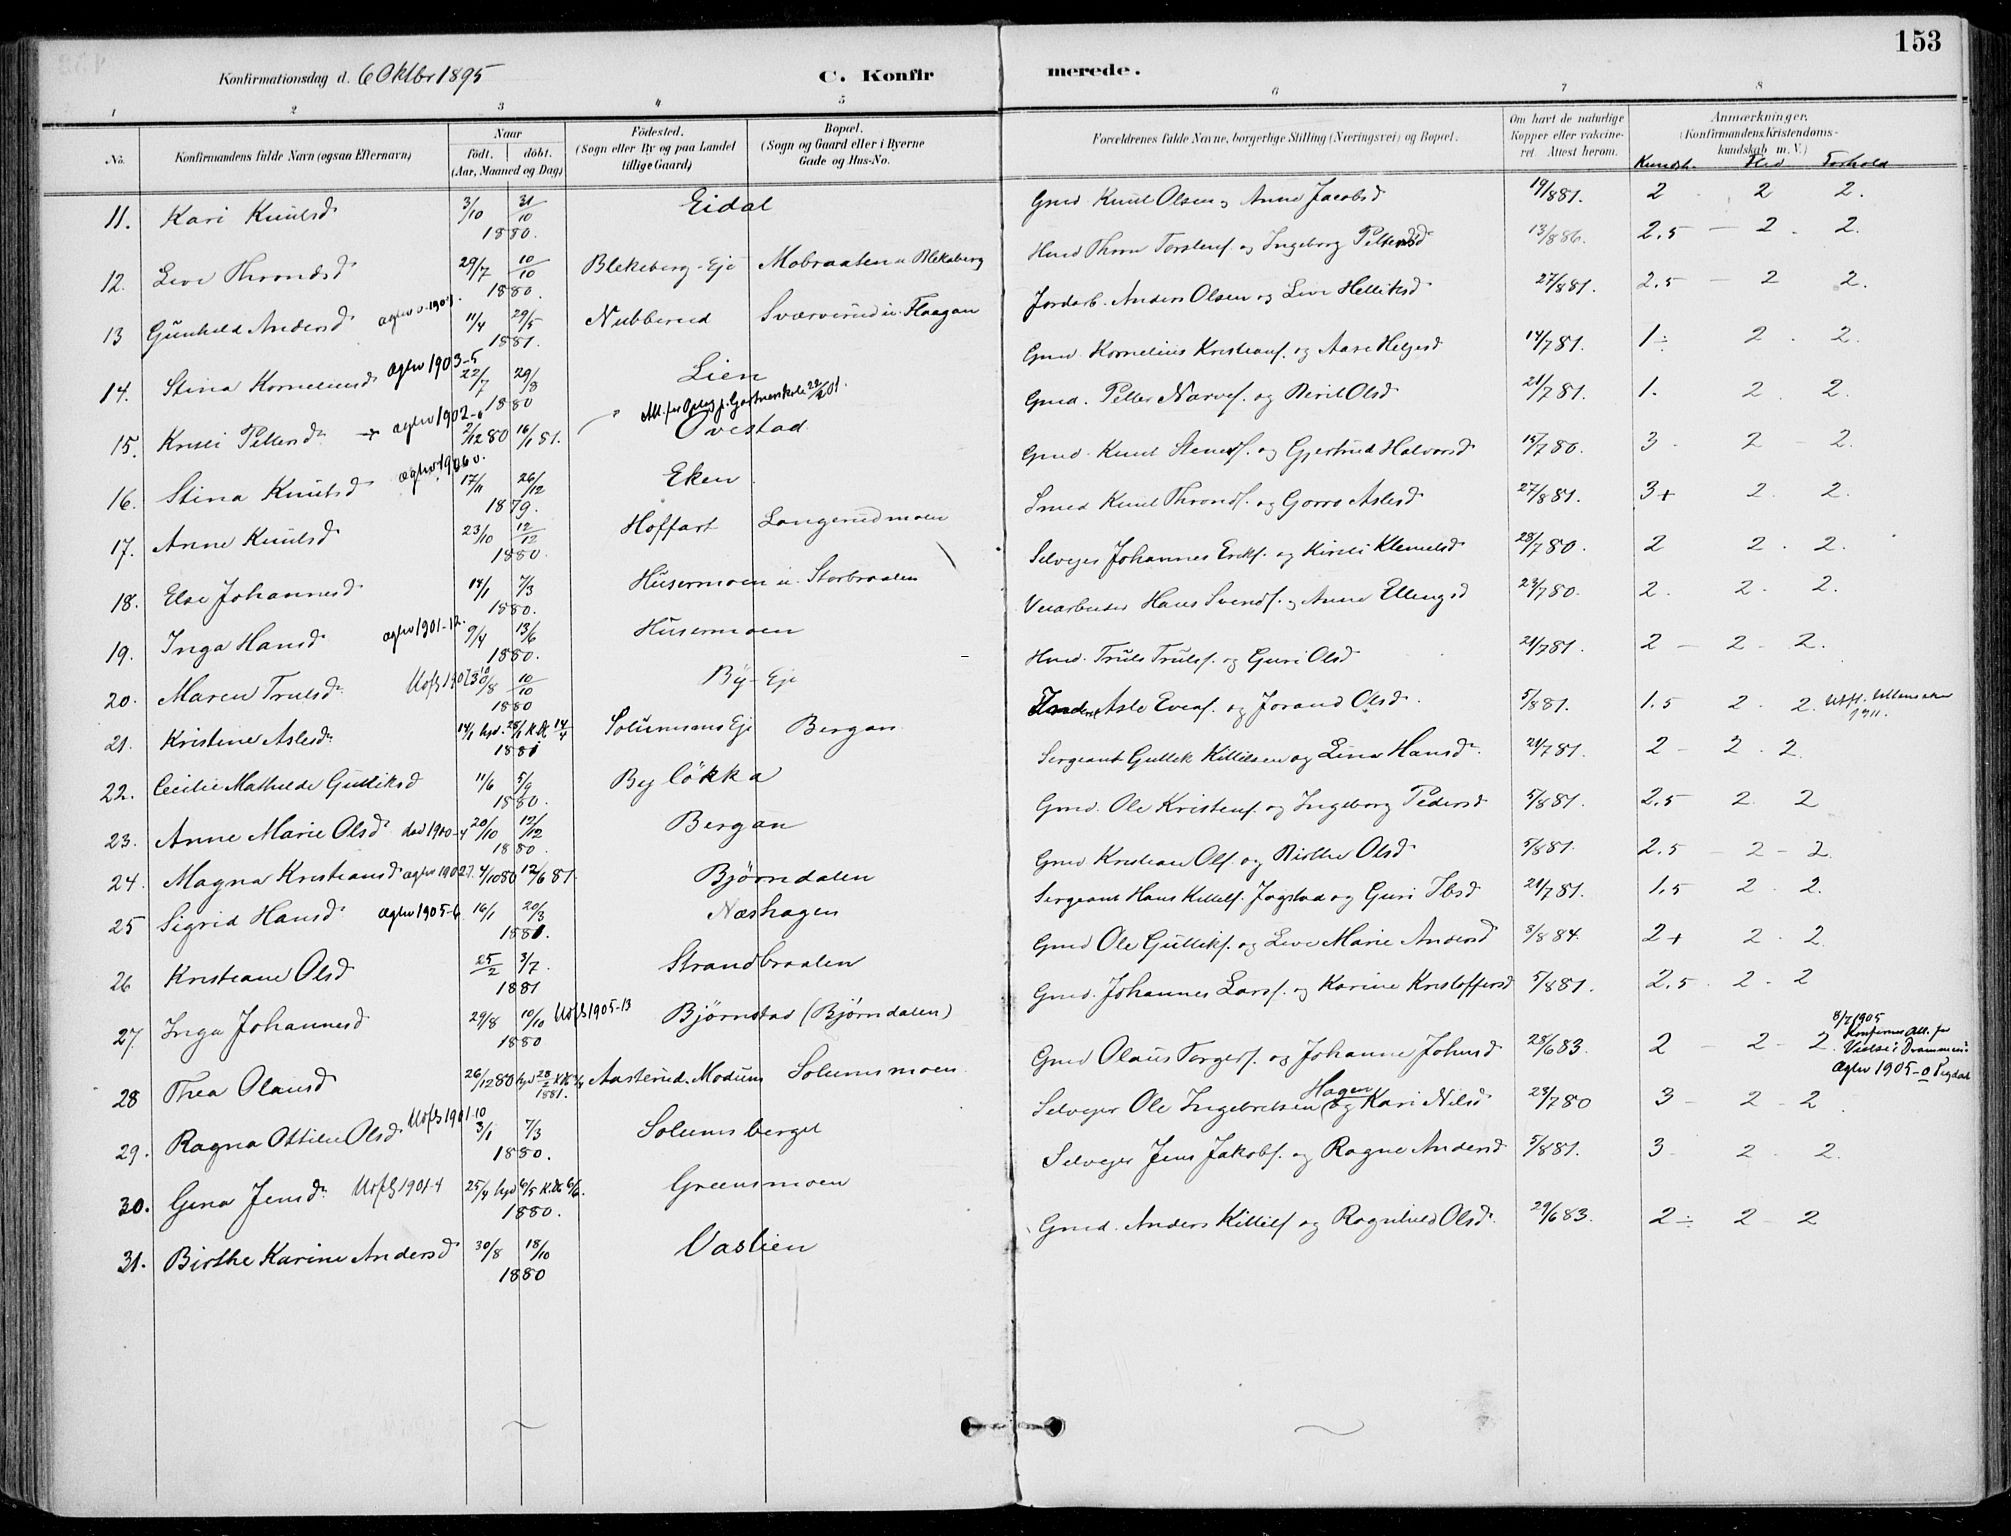 153
Konfirmationsdag d. 6 Oktbr 1895 C. Konfirmerede.
1 2 3 4 5 6 7 8
No. Konfirmandens fulde Navn (ogsaa Efternavn) Naar født. døbt. (Aar, Maaned og Dag) Fødested. (Sogn eller By og paa Landet tillige Gaard) Bopæl. (Sogn og Gaard eller i Byerne Gade og Hus-No. Forældrenes fulde Navne, borgerlige Stilling (Næringsvei) og Bopæl. Om havt de naturlige Kopper eller vakcineret. Attest herom. Anmærkninger. (Konfirmandens Kristendomskundskab m. V.) Kundsk. Flid Forhold
11. Kari Knutsd 3/10 31/10 1880. Eidal Gmd Knut Olsen og Anne Jacobsd 19/881. 2 - 2 2.
12. Live Throndsd 29/7 10/10 1880. Blekeberg-Eje Mobraaten u. Blekeberg Hmd Thron Torstens. og Ingeborg Pettersd 13/886. 2.5 - 2. 2.
13 Gunhild Andersd 11/4 29/5 1881. Nubberud Sværverud u. Flaagan Jordarb. Anders Olsen og Live Helliksd 27/881. 2.5 - 2 2.
14. Stina Korneliusd Agtev 1903-5 22/7 29/8 1880 Lien Gmd. Kornelius Kristians. og Aase Helgesd 14/781. 1÷ 2. 2.
15. Kristi Pettersd agtev 1902-6 2/12 80 16/1 81. Ovestad Gmd. Petter Narves. og Berit Olsd 21/781. 1. 2. 2.
16. Stina Knutsd 17/11 26/12 1879. Eken Gmd. Knut Steners. og Gjertrud Halvorsd 15/780. 3 - 2 - 2.
17. Anne Knutsd 23/10 12/12 1880. Hoffart Langerudmoen Smed Knut Thronds. og Gorro Aslesd 27/881. 3+ 2. 2.
18. Else Johannesd 14/1 7/3 1880. Husermoen u. Storbraaten Selvejer Johannes Eriks. og Kirsti Klemetsd 28/780. 2 2. 2.
19. Inga Hansd agtev 1901-12. 9/4 13/6 1880. Husermoen Veiarbeider Hans Svends. og Anne Ellingsd 23/780. 2. 2. 2.
20. Maren Trulsd 30/8 10/10 1880 By-Eje Hmd. Truls Truls. og Guri Olsd 21/781. 2 - 2. 2.
21. Kristine Aslesd 14/1 1881 Solumsens Eje Bergan Asle Evens. og Jorand Olsd. 5/881. 1.5 2. 2. Utfl. Ullensaker 1911.
22. Cecilie Mathilde Gulliksd 11/6 5/9 1880. Byløkka Sergeant Gullik Kittilsen og Lina Hansd. 21/781. 2 - 2. 2.
23. Anne Marie Olsd død 1900-4 20/10 12/12 1880. Bergan Gmd. Ole Kristens. og Ingeborg Pedersd 5/881. 2.5 2. 2
24. Magna Kristiansd agtev 1902 7. 4/10 80 12/6 81. Bjørndalen Gmd Kristian Ols. og Birthe Olsd 5/881. 2.5 - 2 - 2.
25 Sigrid Hansd Agtev 1905-6 16/1 20/3 1881. Næshagen Sergeant Hans Kittils. Jogstad og Guri Ibsd 21/781. 1.5 2. 2.
26 Kristiane Olsd 25/2 3/7. 1881 Strandbraaten Gmd Ole Gulliks. og Live Marie Andersd 3/884. 2+ 2. 2
27. Inga Johannesd 29/8 10/10 1880 Utfl 1905-13 Bjørnstad (Bjørndalen) Gmd. Johannes Lars. og Karine Kristoffersd 5/881. 2.5. 2. 2
28 Thea Olausd 26/12 80 1881. Aasterud. Modum Solumsmoen Gmd Olaus Torgers. og Johanne Johnsd 28/683. 2 - 2 - 2. 8/7 1905 Att. for Vielse i Drammen Agtev 1905-0 Sigdal
29. Ragna Ottilie Olsd Utfl 1901-10 3/1 7/3 1880. Solumsberget Selvejer Ole Ingebretsen (Hagen) og Kari Nilsd 28/780 3 - 2 - 2
30. Gina Jensd. Utfl 1901-4 25/4 1880. Greensmoen Selvejer Jens Jakobs. og Ragne Andersd 5/881. 3 - 2. 2.
31. Birthe Karine Andersd 30/8 18/10 1880 Vaslien Gmd. Anders Kittils. og Ragnhild Olsd. 29/683. 2÷ 2 - 2